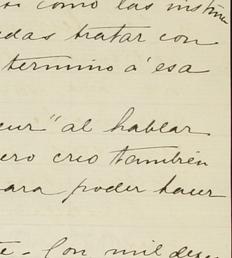 como las instruc
edas tratar con
termino á esa
eur" al hablar
ero creo también
ara poder hacer
te - Con mil dese